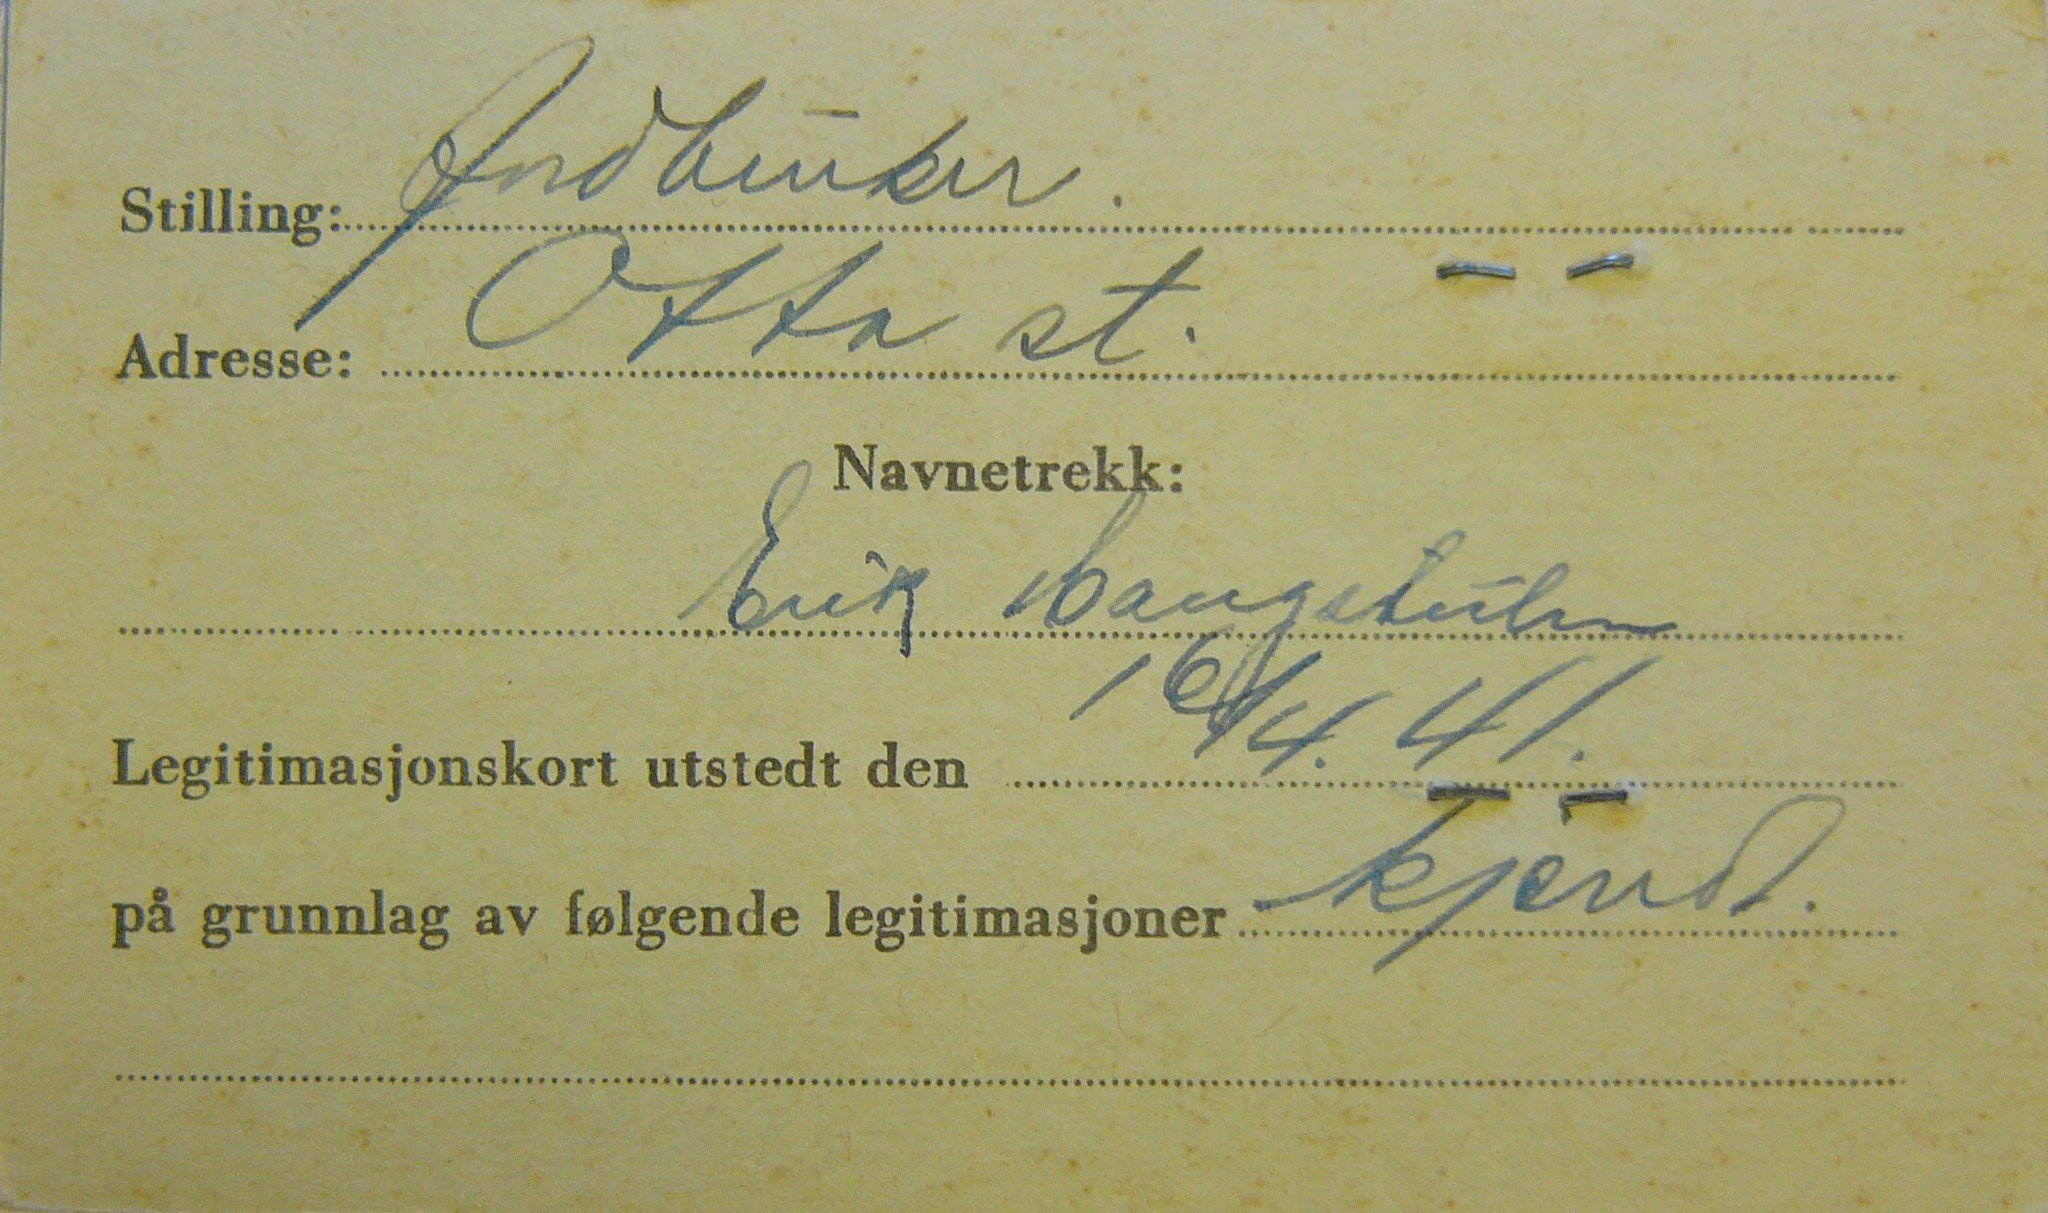 Stilling: Jordbruker.
Adresse: Otta st.
Navnetrekk:
Erik
16/4. 41.
Legitimasjonskort utstedt den
på grunnlag av følgende legitimasjoner kjend.